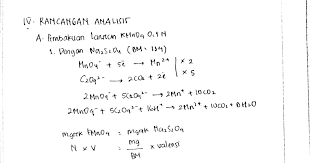 IV. RANCANGAN ANALISIS
A. Pembakuan larutan KMnO4 0,1 N
1. Dengan Na2S2O4 (BM = 134)
MnO4⁻ + 5e → Mn²⁺ | x 2
C2O4²⁻ → 2CO2 + 2e | x 5
2MnO4⁻ + 5C2O4²⁻ → 2Mn²⁺ + 10CO2
2MnO4⁻ + 5C2O4²⁻ + 16H⁺ → 2Mn²⁺ + 10CO2 + 8H2O
mgrek KMnO4 = mgrek Na2S2O4
N x V = mg/BM x valensi